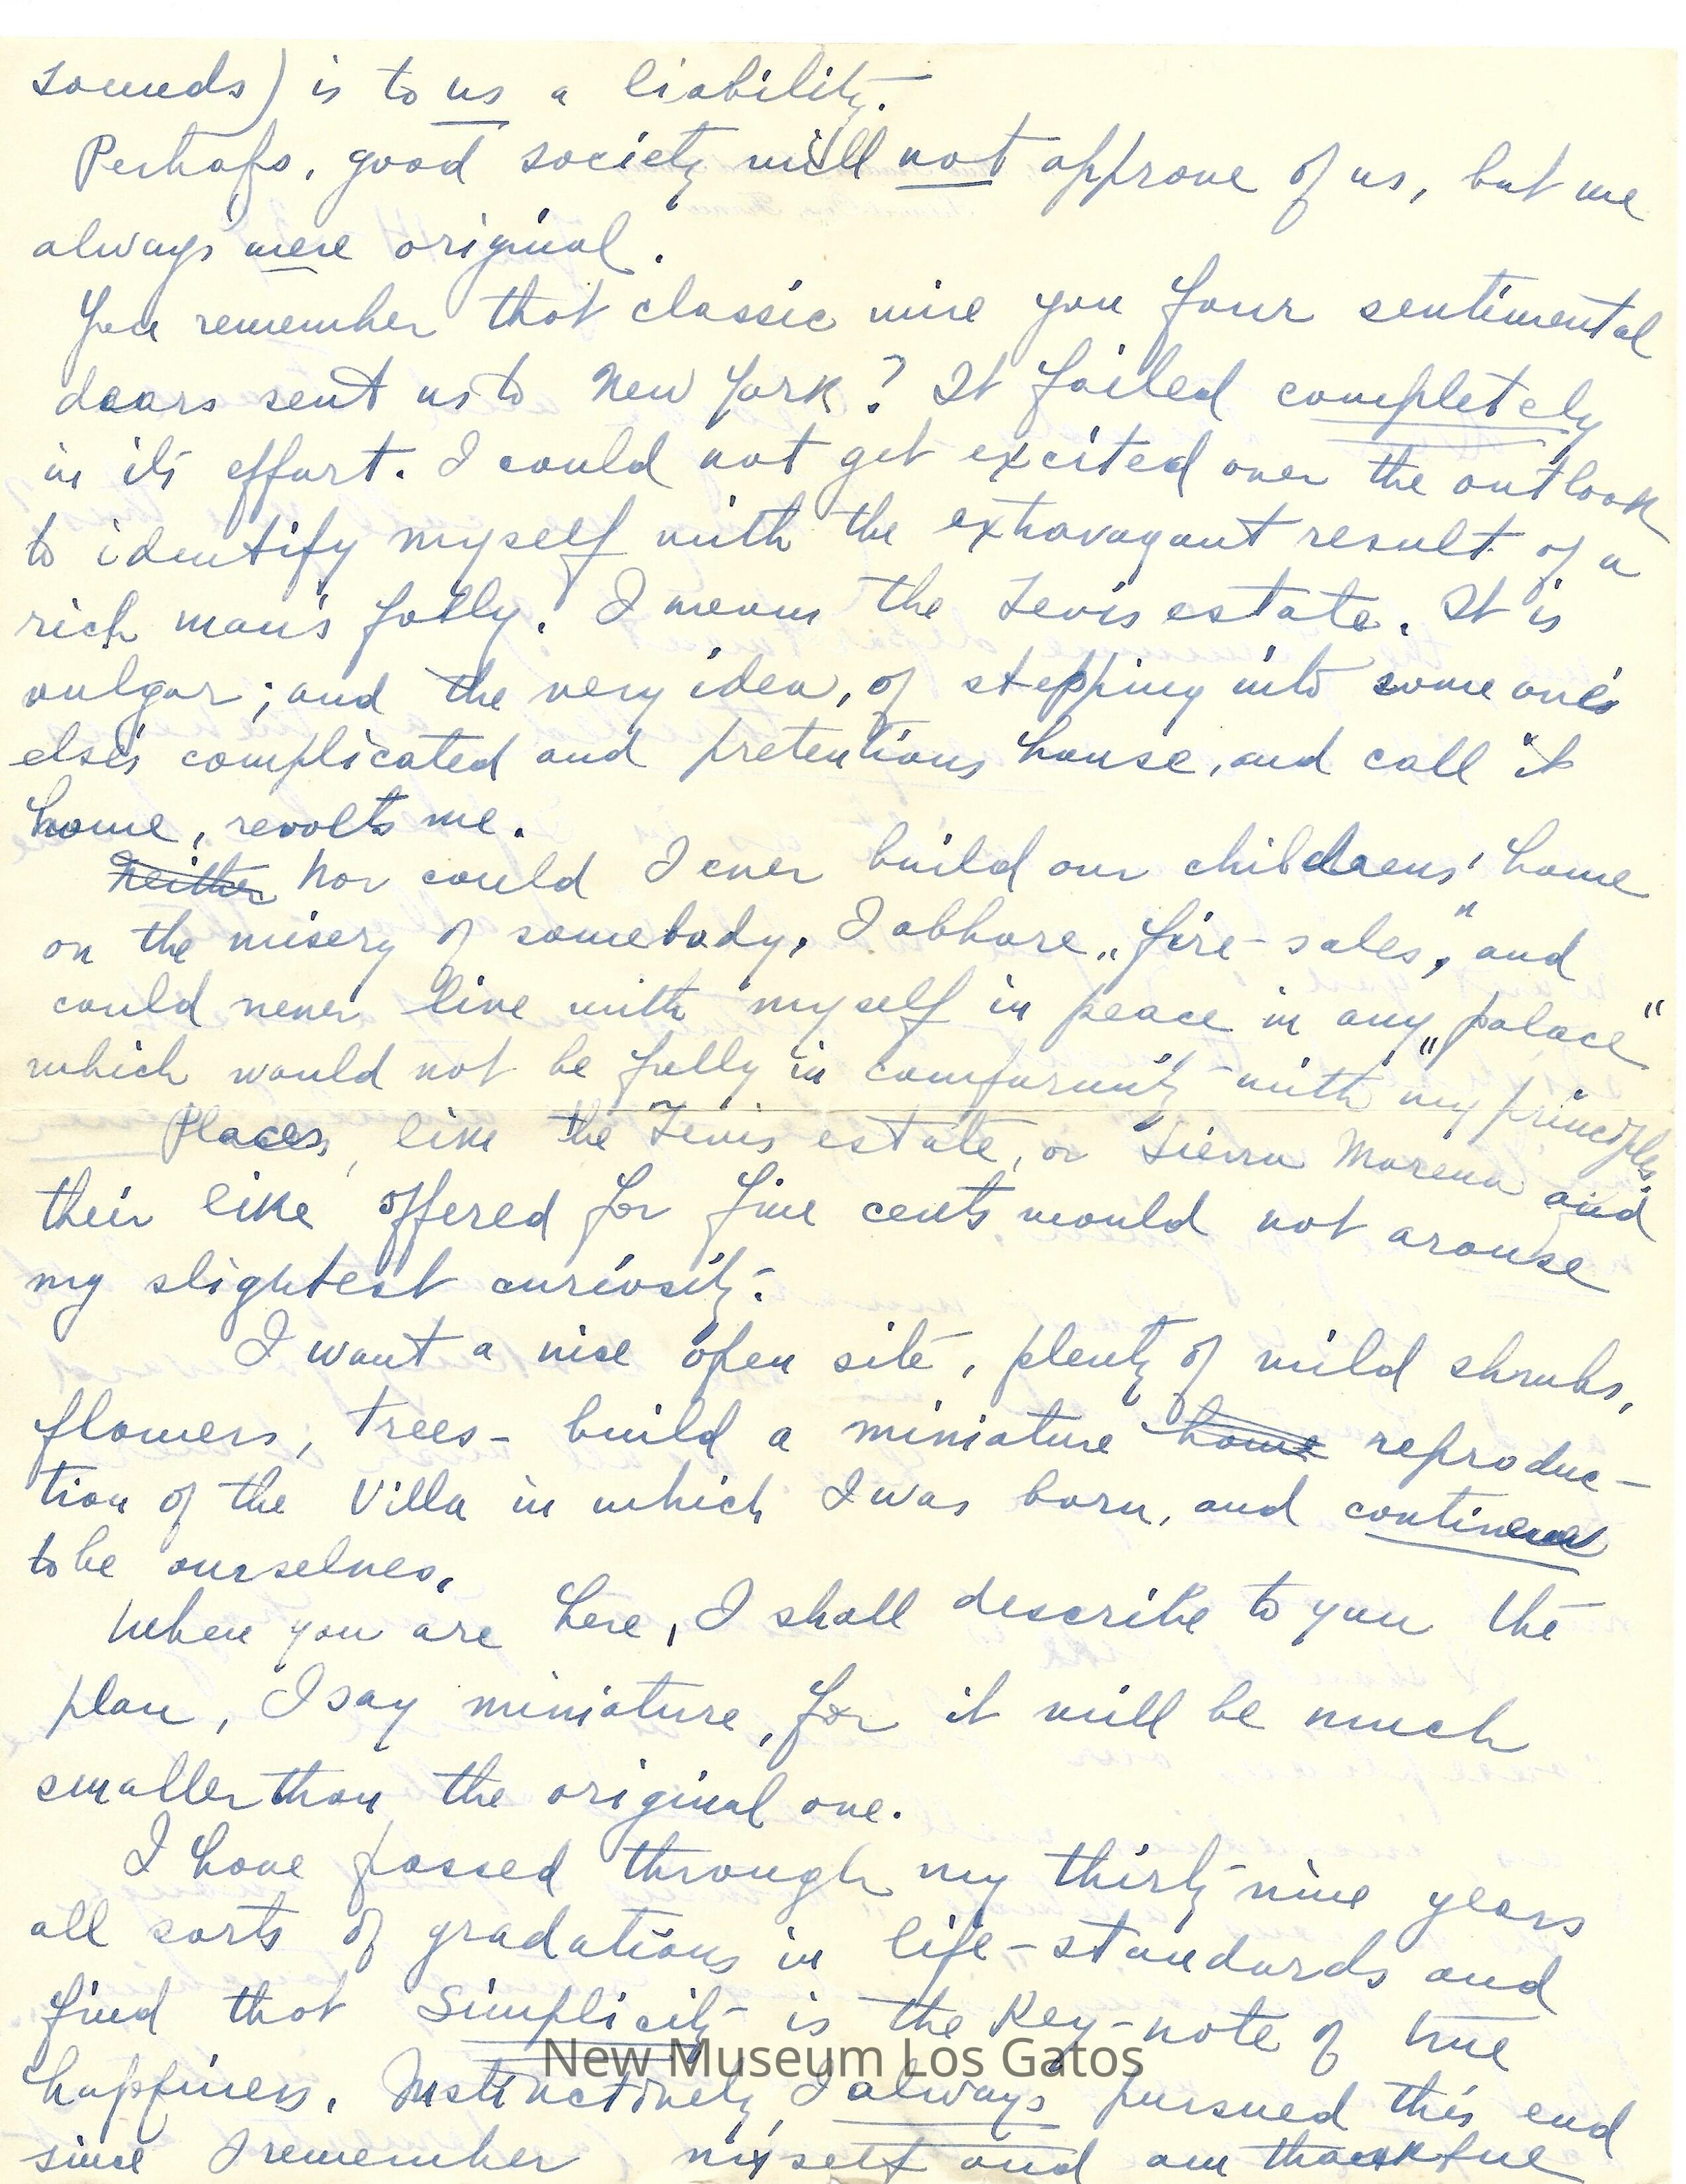 sounds) is to us a liability.
Perhaps, good society will not approve of us, but we
always were original.
You remember that classic wire you four sentimental
dears sent us to New York? It failed completely
in its effort. I could not get excited over the outlook
to identify myself with the extravagant result of a
rich man's folly. I mean the Tevis estate. It is
vulgar; and the very idea, of stepping into some one's
else's complicated and pretentious house, and call it
home, revolts me.
Neither Nor could I ever build our childrens' home
on the misery of somebody, I abhore „fire-sales," and
could never live with myself in peace in any „palace"
which would not be fully in comformity with my principles
Places, like the Tevis estate, or Sierra Morena and
their like offered for five cents would not arouse
my slightest curiosity.
I want a nice open site, plenty of wild shrubs,
flowers, trees - build a miniature home reproduc-
tion of the Villa in which I was born, and continue
to be ourselves.
When you are here, I shall describe to you the
plan, I say miniature, for it will be much
smaller than the original one.
I have passed through my thirty-nine years
all sorts of gradations in life-standards and
find that simplicity is the Key-note of true
happiness. Instinctively, I always pursued this end
since I remember myself and am thankful
New Museum Los Gatos